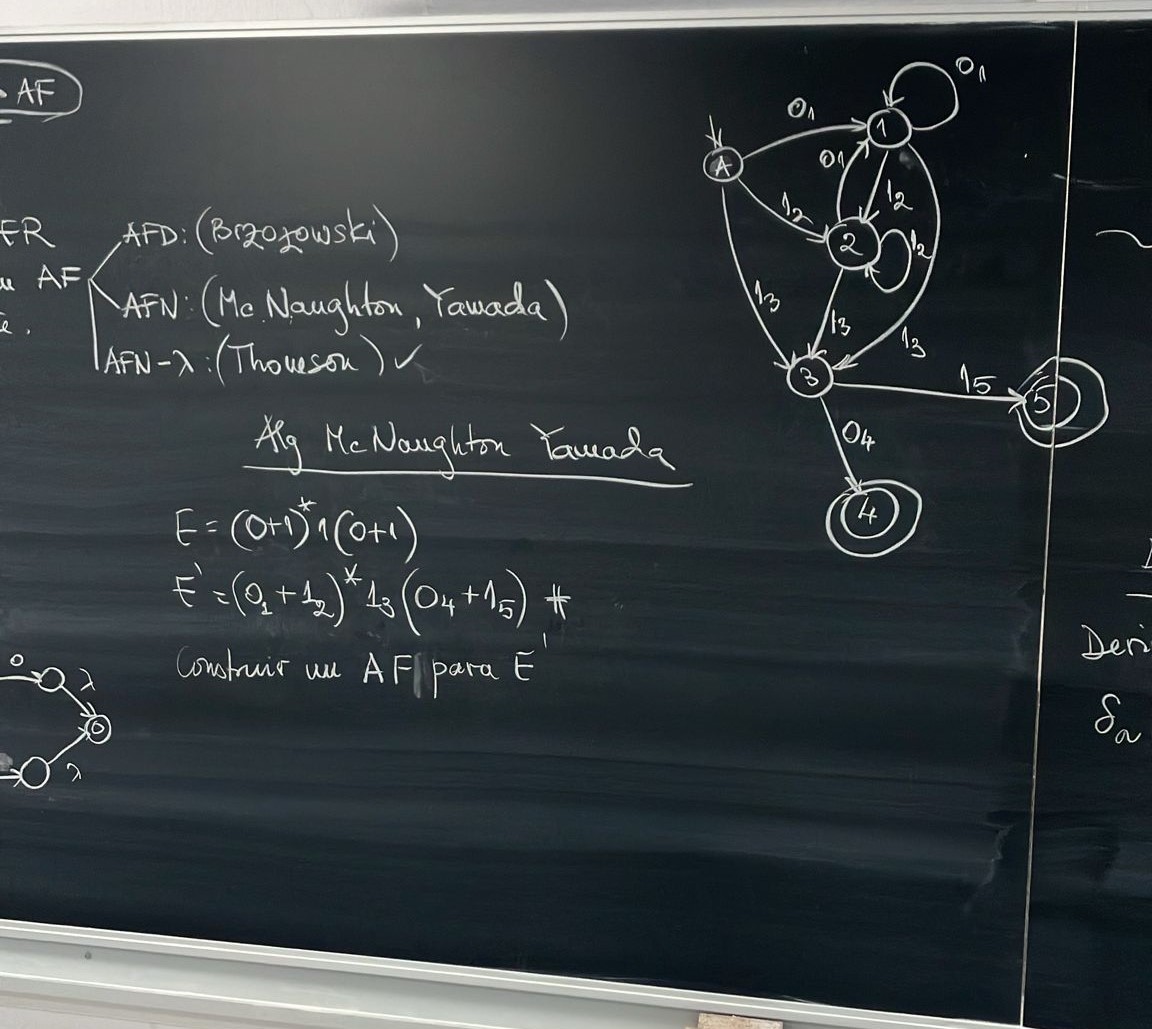 AF
ER
AF
AFD: (Brzozowski)
AFN: (Mc Naughton, Yamada)
AFN-λ: (Thomson) ✓
Alg McNaughton Yamada
E = (0+1)*1(0+1)
E' = (0₁+1₂)*1₃(0₄+1₅) #
Construir un AF para E'
0
λ
λ
A
0₁
1
0₁
0₁
1₂
1₂
2
1₂
1₃
1₃
1₃
3
1₅
5
0₄
4
Deri
δₐ